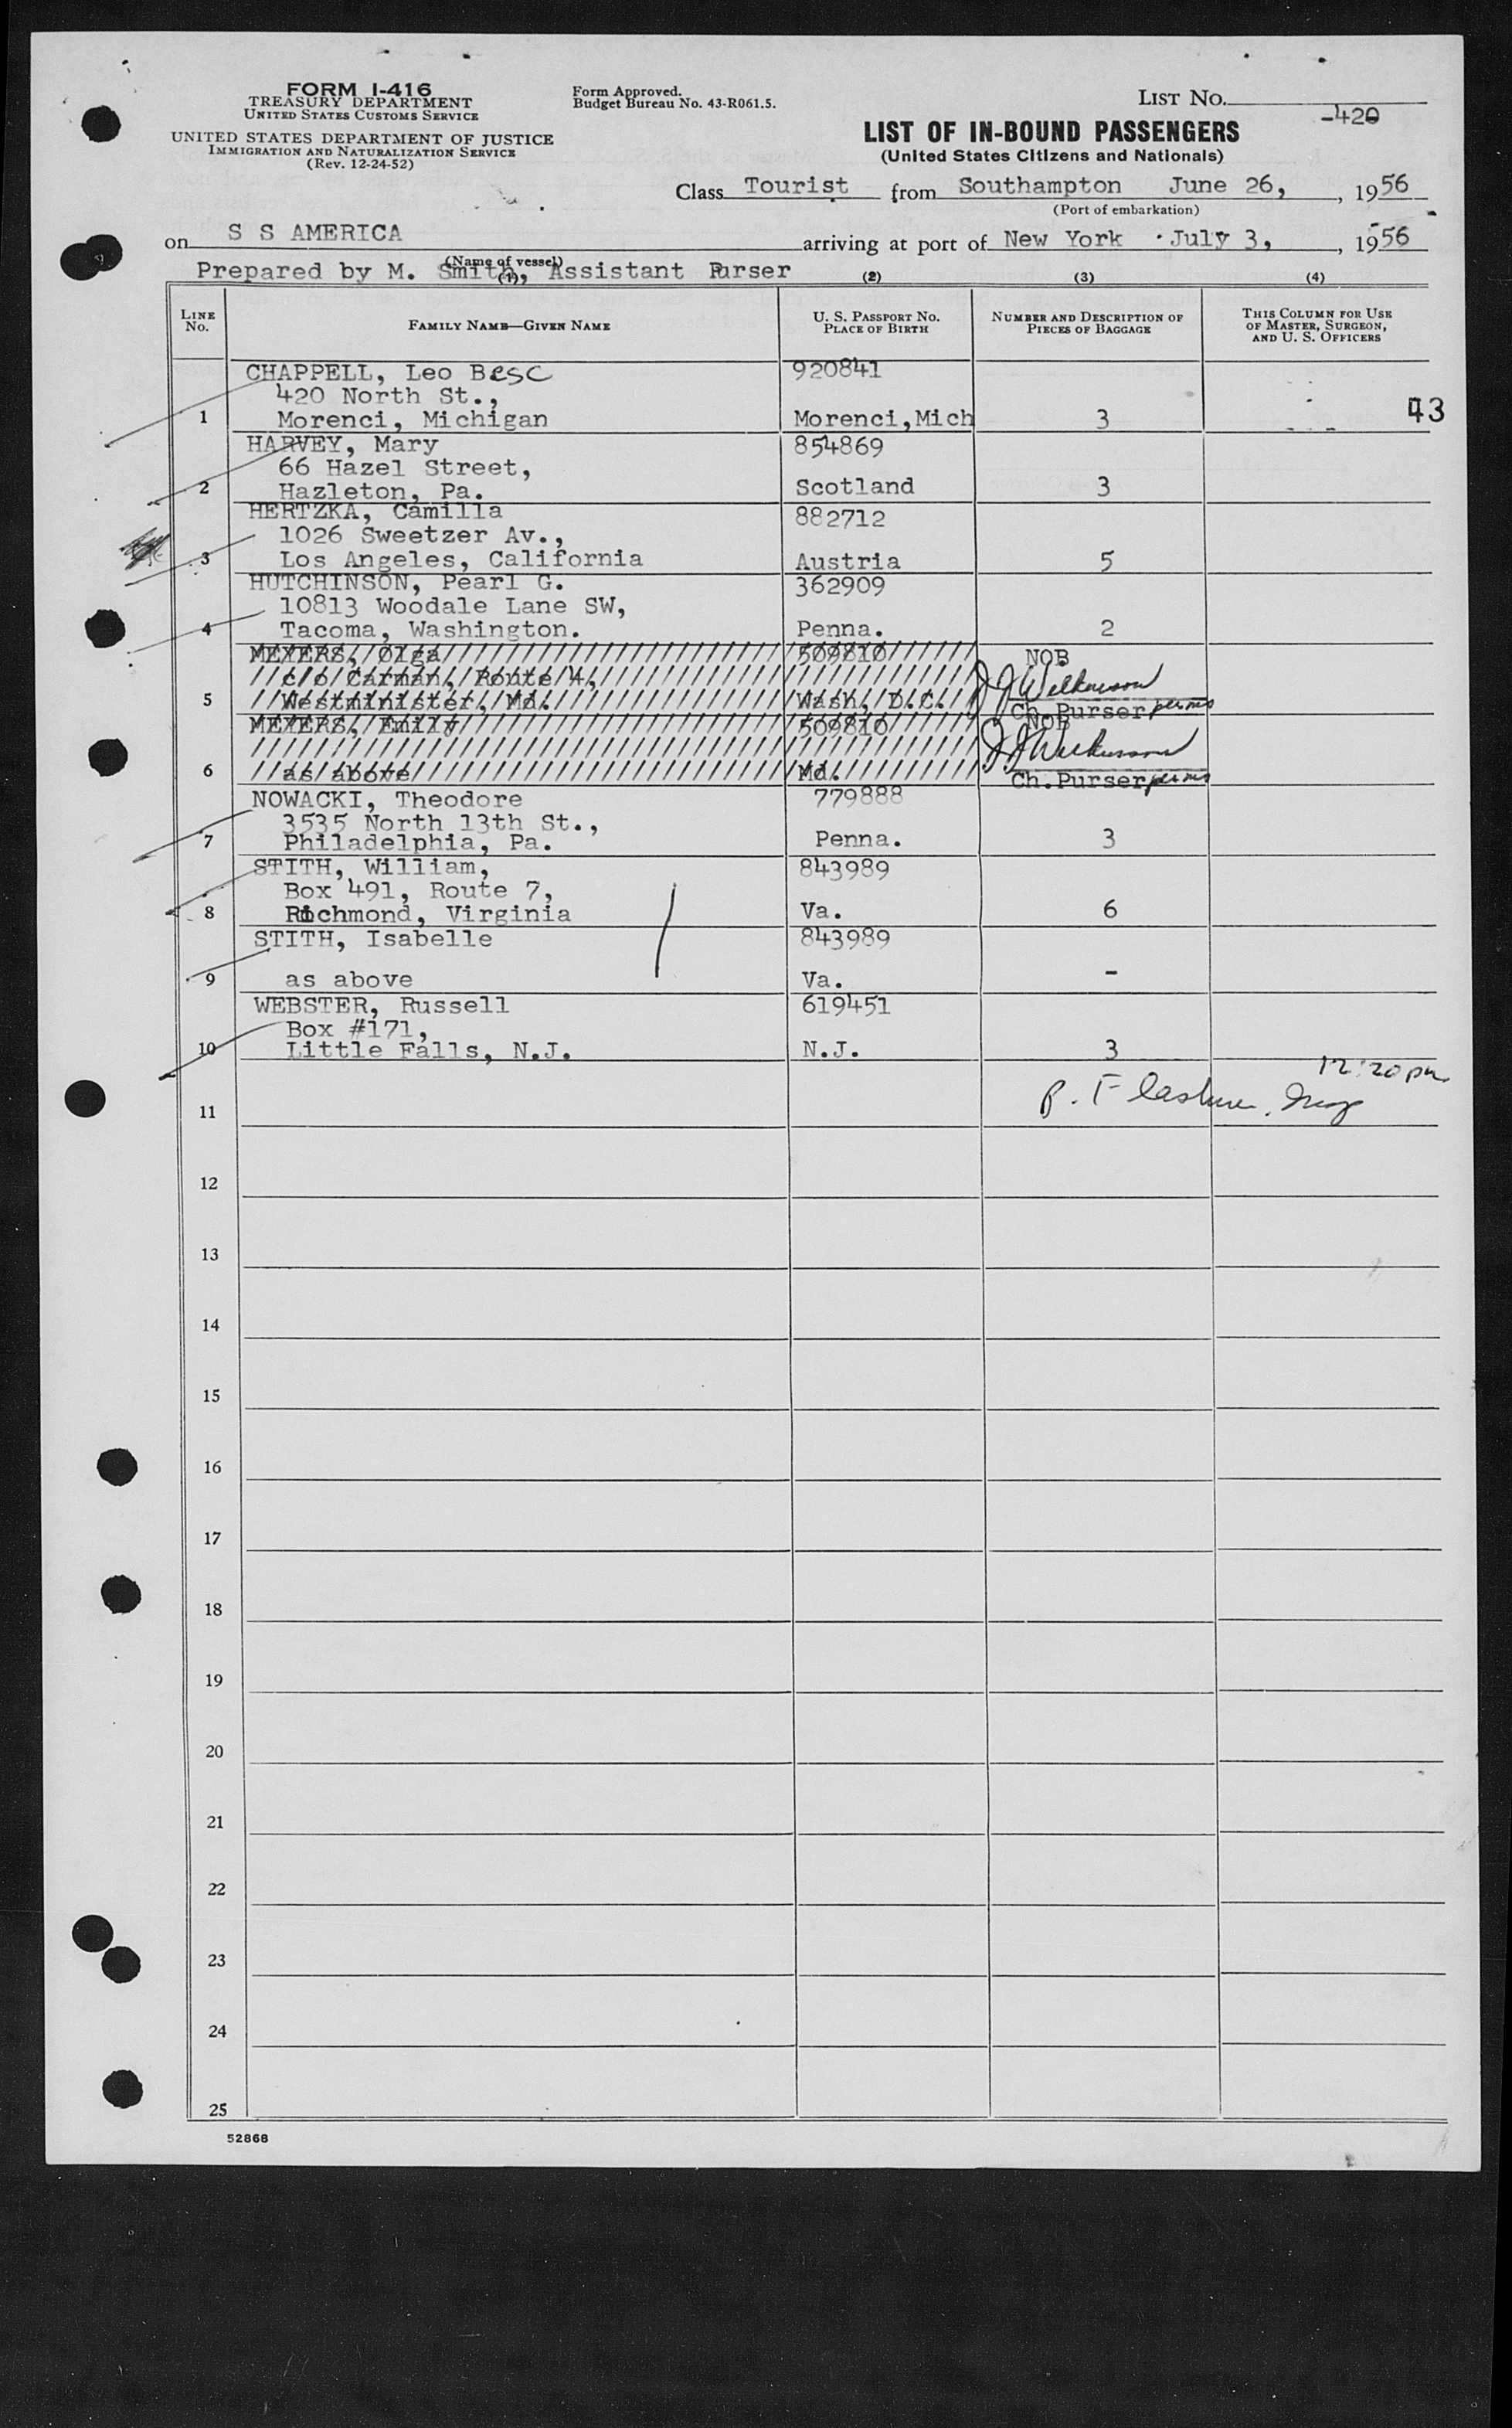 FORM I-416
TREASURY DEPARTMENT
UNITED STATES CUSTOMS SERVICE
UNITED STATES DEPARTMENT OF JUSTICE
IMMIGRATION AND NATURALIZATION SERVICE
(Rev. 12-24-52)
Form Approved.
Budget Bureau No. 43-R061.5.
LIST NO.
-420
LIST OF IN-BOUND PASSENGERS
(United States Citizens and Nationals)
Class Tourist from Southampton June 26, , 1956
(Port of embarkation)
on S S AMERICA arriving at port of New York July 3, , 1956
(Name of vessel)
Prepared by M. Smith, Assistant Purser
(1) (2) (3) (4)
LINE No. FAMILY NAME—GIVEN NAME U. S. PASSPORT NO. PLACE OF BIRTH NUMBER AND DESCRIPTION OF PIECES OF BAGGAGE THIS COLUMN FOR USE OF MASTER, SURGEON, AND U. S. OFFICERS
CHAPPELL, Leo Besc 920841
420 North St.,
1 Morenci, Michigan Morenci,Mich 3 43
HARVEY, Mary 854869
66 Hazel Street,
2 Hazleton, Pa. Scotland 3
HERTZKA, Camilla 882712
1026 Sweetzer Av.,
3 Los Angeles, California Austria 5
HUTCHINSON, Pearl G. 362909
10813 Woodale Lane SW,
4 Tacoma, Washington. Penna. 2
MEYERS, Olga 509810 NOB
c/o Carman, Route 4, J J Wilkinson
5 Westminister, Md. Wash, D.C. Ch. Purser
MEYERS, Emily 509810 NOB
J J Wilkinson
6 as above Md. Ch. Purser
NOWACKI, Theodore 779888
3535 North 13th St.,
7 Philadelphia, Pa. Penna. 3
STITH, William, 843989
Box 491, Route 7,
8 Richmond, Virginia Va. 6
STITH, Isabelle 843989
9 as above Va. -
WEBSTER, Russell 619451
Box #171,
10 Little Falls, N.J. N.J. 3
12:20 pm
11
12
13
14
15
16
17
18
19
20
21
22
23
24
25
52868